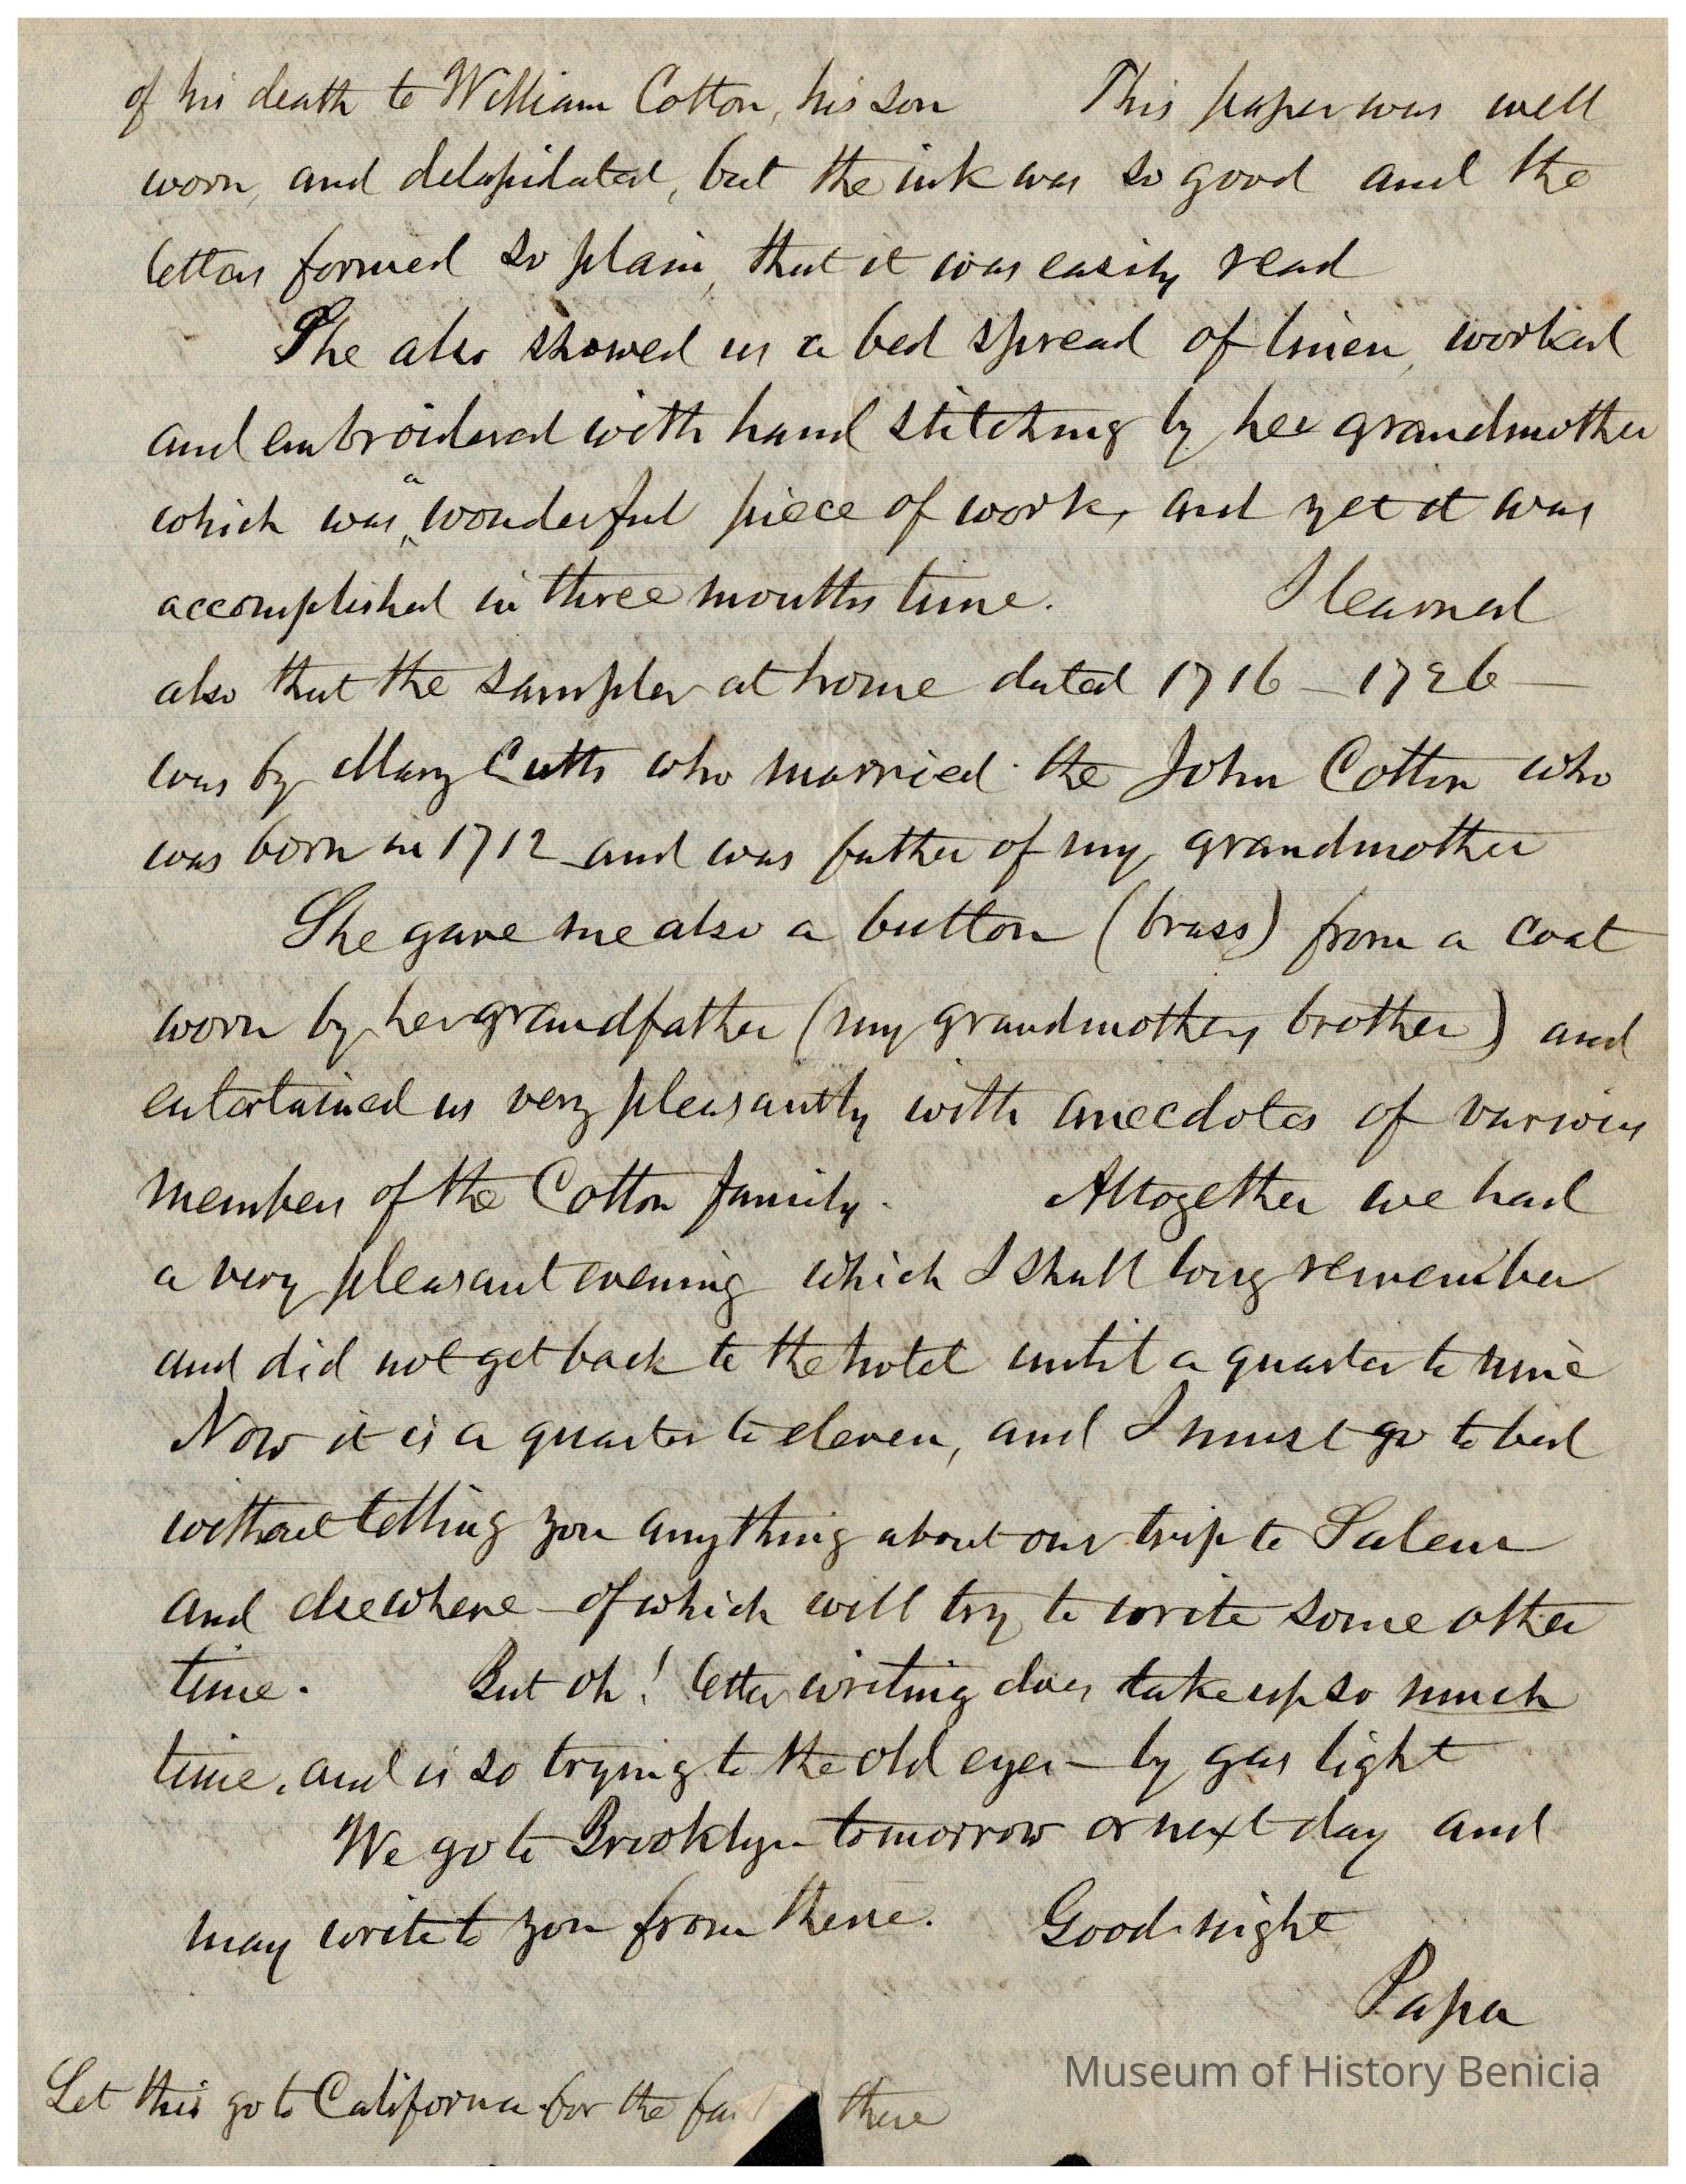 of his death to William Cotton, his son This paper was well
worn, and delapidated, but the ink was so good and the
letters formed so plain, that it was easily read
She also showed us a bed spread of linen, worked
and embroidered with hand stitching by her grandmother
which was a wonderful piece of work, and yet it was
accomplished in three months time. I learned
also that the sampler at home dated 1716 – 1726 –
was by Mary Cutts who married the John Cotton who
was born in 1712 and was father of my grandmother
She gave me also a button (brass) from a coat
worn by her grandfather (my grandmothers brother) and
entertained us very pleasantly with anecdotes of various
members of the Cotton family. Altogether we had
a very pleasant evening which I shall long remember
and did not get back to the hotel until a quarter to nine
Now it is a quarter to eleven, and I must go to bed
without telling you anything about our trip to Salem
and elsewhere – of which will try to write some other
time. But oh! letter writing does take up so much
time, and is so trying to the old eyes – by gas light
We go to Brooklyn tomorrow or next day and
may write to you from there. Good night
Papa
Museum of History Benicia
Let this go to California for the there